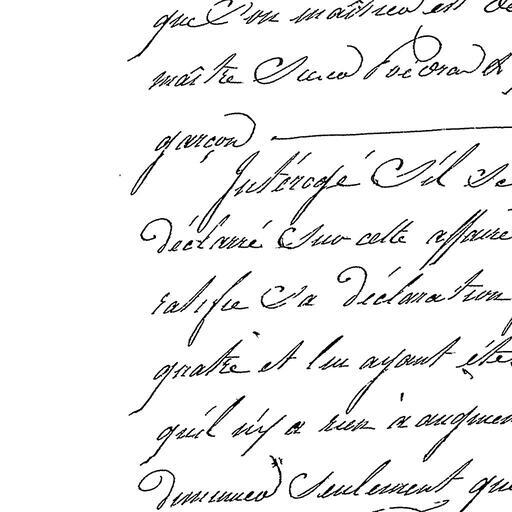 que Son maitre est
maitre Sieur
garçon
Intérogé S'il se
déclarré Sur cette affaire
ratifie Sa déclaration
quatre et lui ayant été
qu'il n'y a rien à augmen
diminuer Seulement que